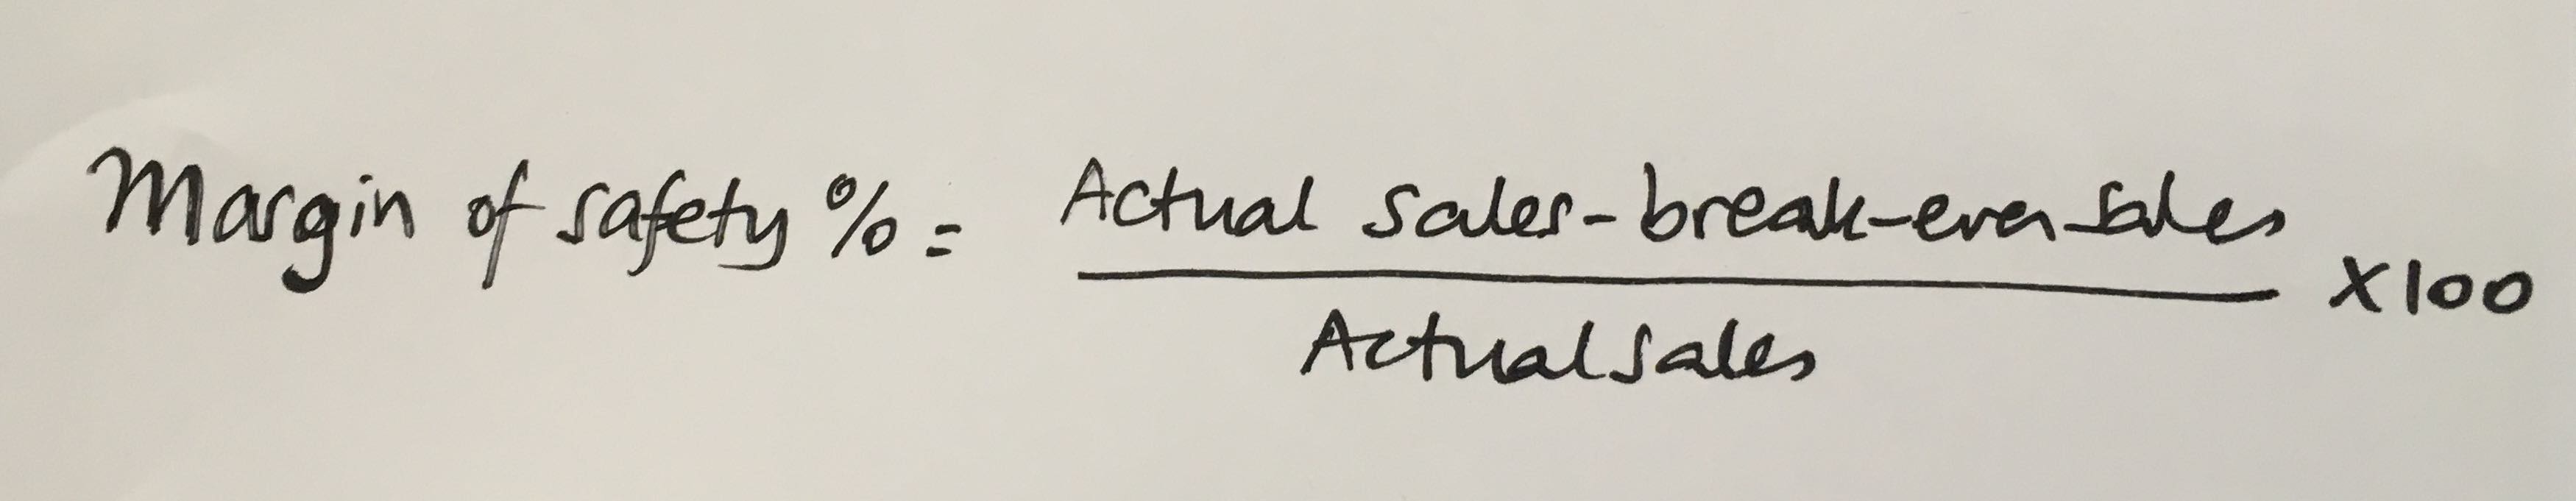 Margin of safety % = Actual sales - break-even sales
Actual sales
X 100